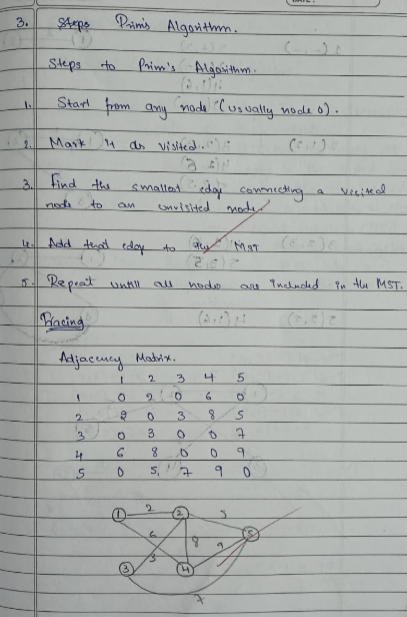 DATE:
3. Prim's Algorithm.
Steps to Prim's Algorithm.
1. Start from any node (usually node 0).
2. Mark it as visited.
3. Find the smallest edge connecting a visited
node to an unvisited node.
4. Add that edge to the MST
5. Repeat until all nodes are included in the MST.
Tracing
Adjacency Matrix.
1 2 3 4 5
1 0 2 0 6 0
2 2 0 3 8 5
3 0 3 0 0 7
4 6 8 0 0 9
5 0 5 7 9 0
1 2 2 5
6 8 5
3 9
3 4
7